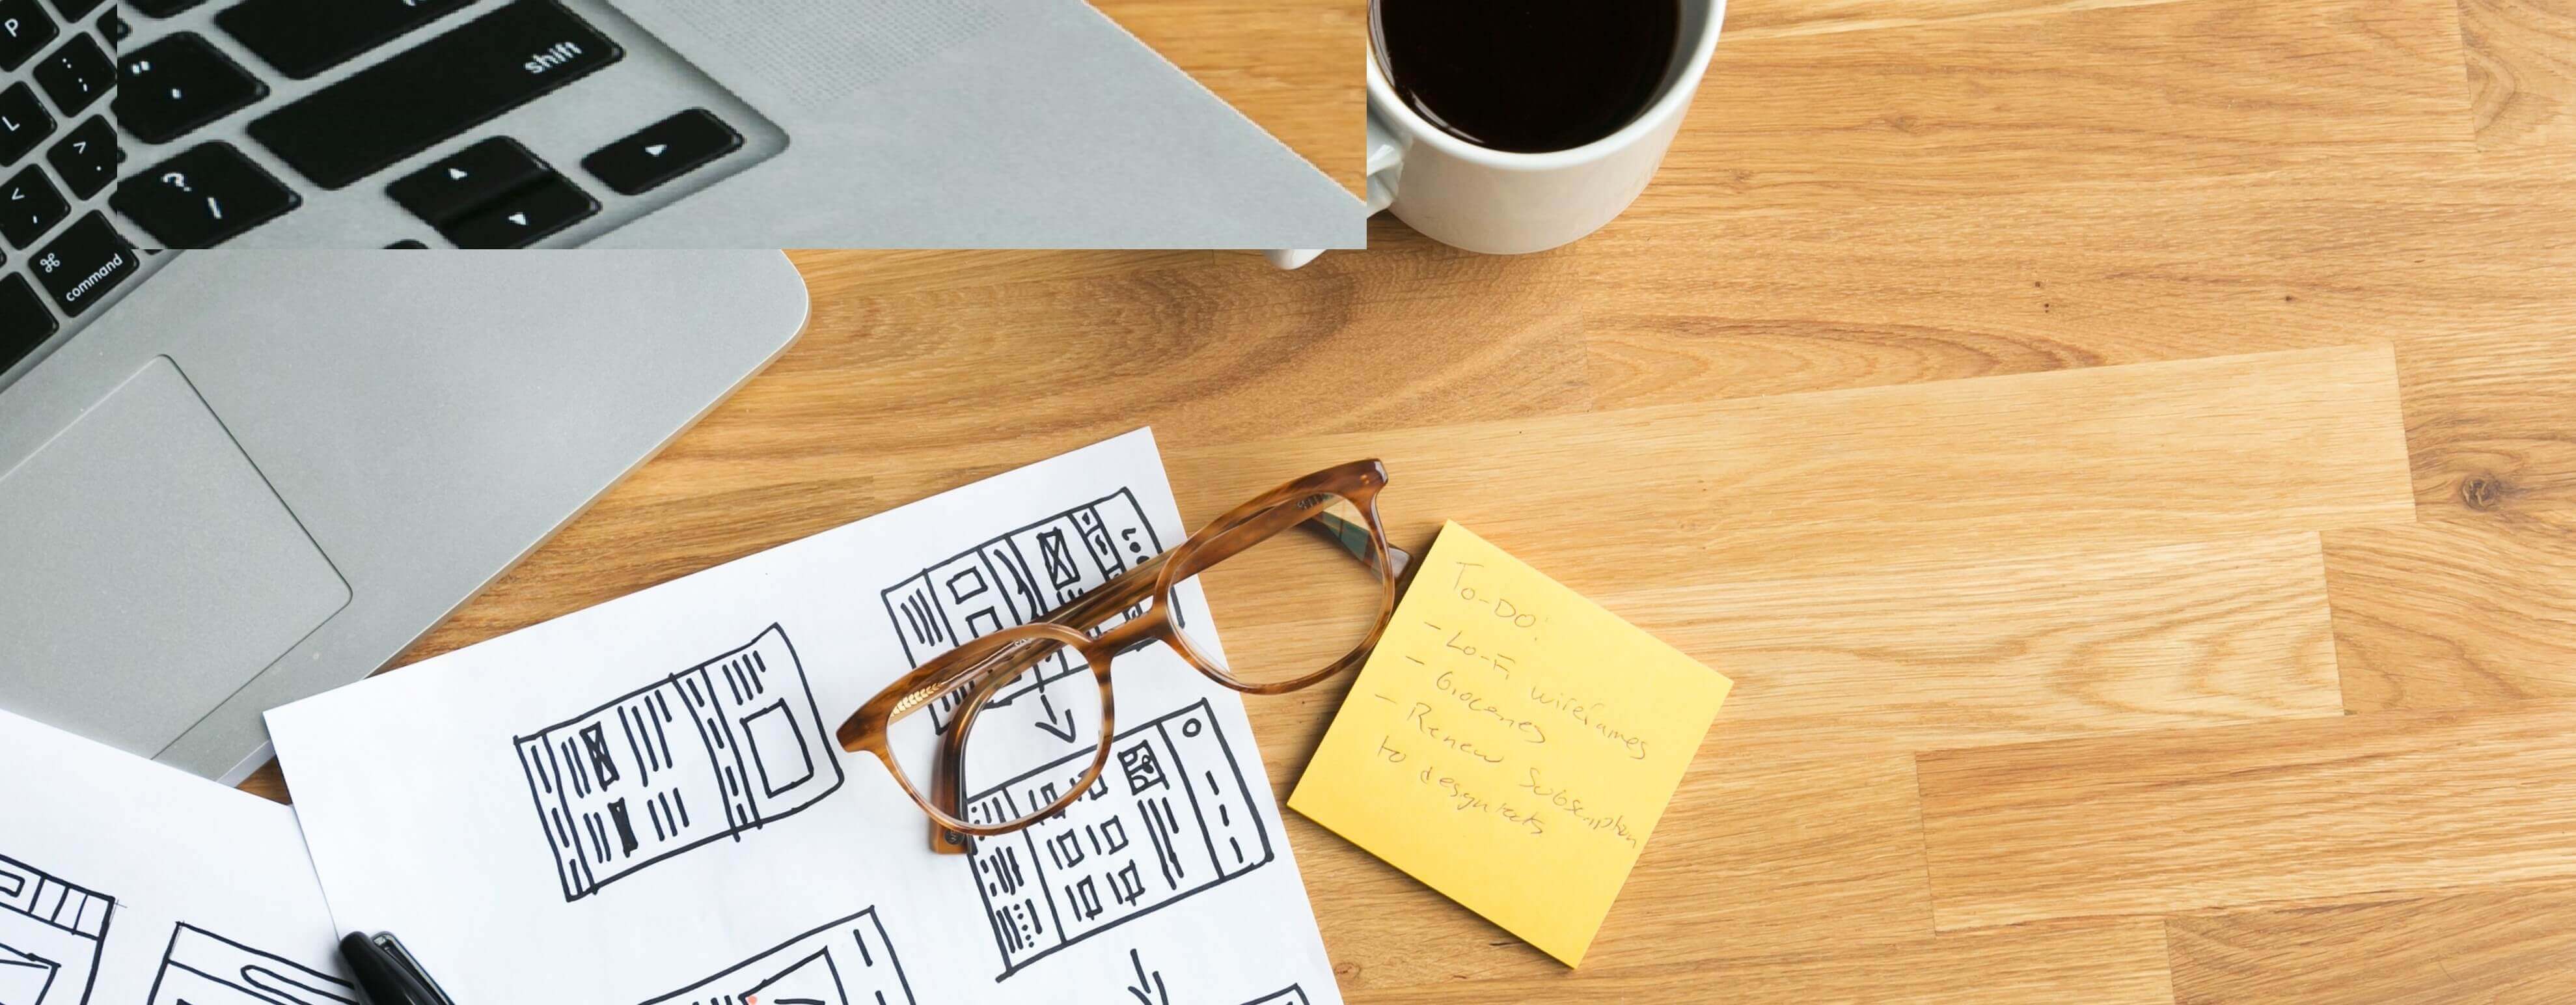 P
:
;
"
'
shift
L
>
.
?
/
<
,
⌘
command
To-DO:
- Lo-Fi wireframes
- Groceries
- Renew Subscription
to design tools